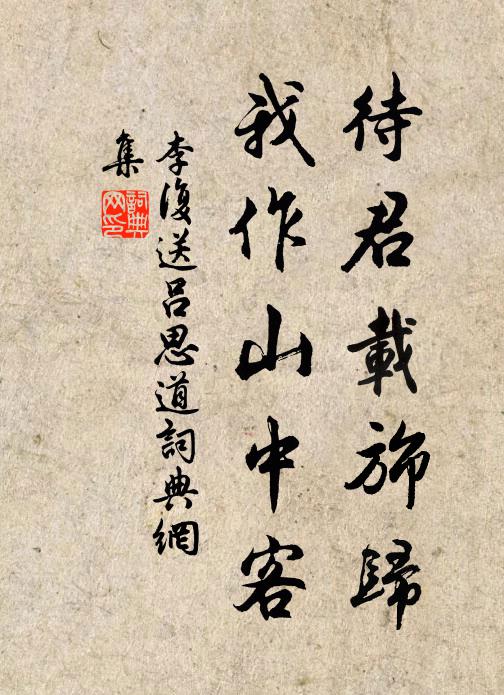 待君載旆歸
我作山中客
李復送呂思道詞典網
集
詞典
网印